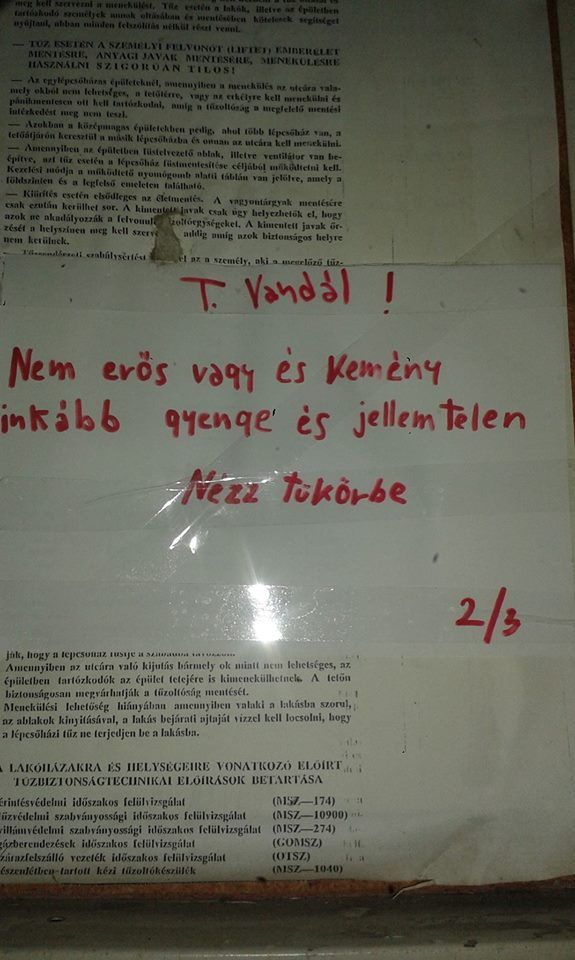 meg kell szervezni a mentést. Tűz esetén a lakók, illetve az épületben
tartózkodó személyek annak oltásában és mentésében kötelesek segítséget
nyújtani, abban minden felszólítás nélkül részt venni.
— TŰZ ESETÉN A SZEMÉLYI FELVONÓT (LIFTET) EMBERÉLET
MENTÉSRE, ANYAGI JAVAK MENTÉSÉRE, MENEKÜLÉSRE
HASZNÁLNI SZIGORÚAN TILOS!
— Az egylépcsőházas épületeknél, amennyiben a menekülés az utcára vala-
mely okból nem lehetséges, a tetőtérre, vagy az erkélyre kell menekülni és
pánikmentesen ott kell tartózkodni, amíg a tűzoltóság a megfelelő mentési
intézkedést meg nem teszi.
— Azokban a középmagas épületekben pedig, ahol több lépcsőház van, a
tetőátjárón keresztül a másik lépcsőházba és onnan az utcára kell menekülni.
— Amennyiben az épületben füstelvezető ablak, illetve ventilátor van be-
építve, azt tűz esetén a lépcsőház füstmentesítése céljából működtetni kell.
Kezelési módja a működtető nyomógomb alatti táblán van jelölve, amely a
földszinten és a legfelső emeleten található.
— Kiürítés esetén elsődleges az életmentés. A vagyontárgyak mentésére
csak ezután kerülhet sor. A kimentett javak csak úgy helyezhetők el, hogy
azok ne akadályozzák a felvonuló tűzoltóegységeket. A kimentett javak őr-
zését a helyszínen meg kell szerve addig amíg azok biztonságos helyre
nem kerülnek.
— Tűzrendészeti szabálysértést el az a személy, aki a megelőző tűz-
T. Vandál !
Nem erős vagy és kemény
inkább gyenge és jellemtelen
Nézz tükörbe
2/3
ják, hogy a lépcsőház füstje a szabadba távozzon.
Amennyiben az utcára való kijutás bármely ok miatt nem lehetséges, az
épületben tartózkodók az épület tetejére is kimenekülhetnek. A tetőn
biztonságosan megvárhatják a tűzoltóság mentését.
Menekülési lehetőség hiányában amennyiben valaki a lakásba szorul,
az ablakok kinyitásával, a lakás bejárati ajtaját vízzel kell locsolni, hogy
a lépcsőházi tűz ne terjedjen be a lakásba.
A LAKÓHÁZAKRA ÉS HELYSÉGEIRE VONATKOZÓ ELŐÍRT
TŰZBIZTONSÁGTECHNIKAI ELŐÍRÁSOK BETARTÁSA
érintésvédelmi időszakos felülvizsgálat (MSZ—174)
tűzvédelmi szabványossági időszakos felülvizsgálat (MSZ—10900)
villámvédelmi szabványossági időszakos felülvizsgálat (MSZ—274)
gázberendezések időszakos felülvizsgálat (GOMSZ)
szárazfelszálló vezeték időszakos felülvizsgálat (OTSZ)
készenlétben tartott kézi tűzoltókészülék (MSZ—1040)